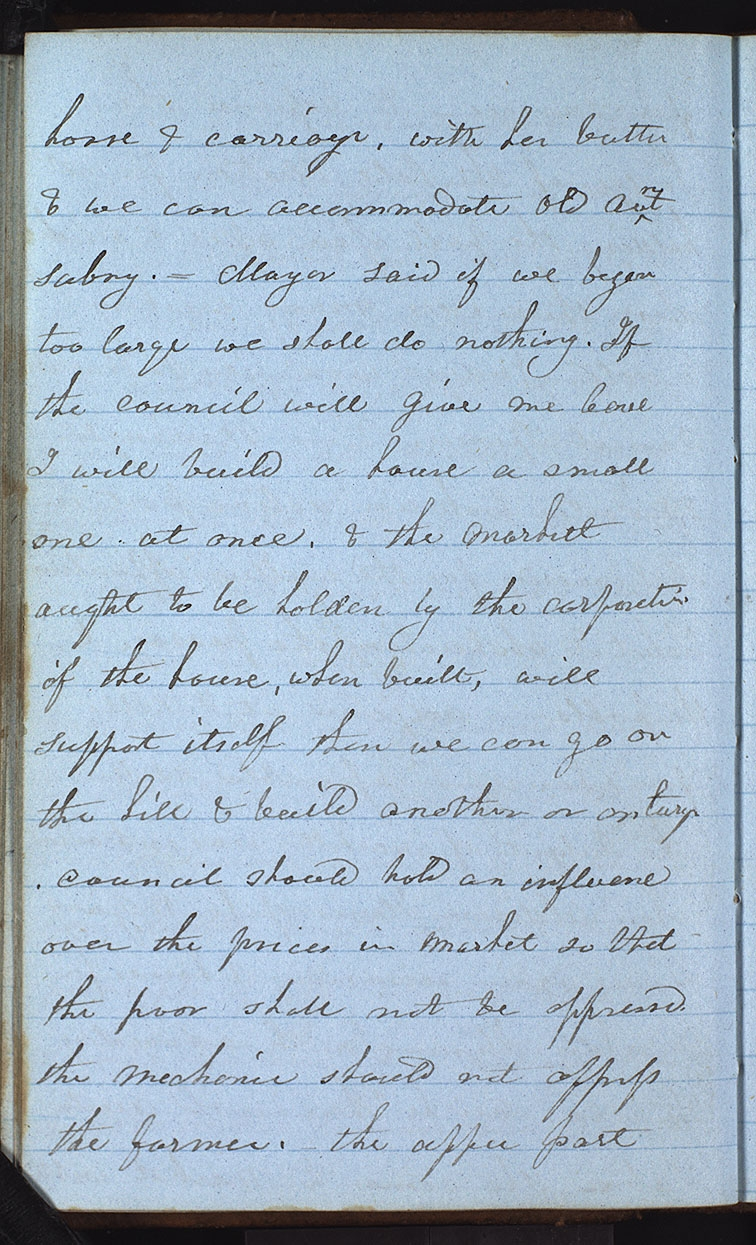 horse & carriage, with her butter
& we can accommodate old aunt
sabry. = Mayor said if we began
too large we shall do nothing. If
the council will give me leave
I will build a house a small
one at once. & the market
aught to be holden by the corporation
if the house, when built, will
support itself then we can go on
the hill & build another or enlarge
. council should hold an influence
over the prices in market so that
the poor shall not be oppressed.
the mechanic should not oppress
the farmer. the upper part